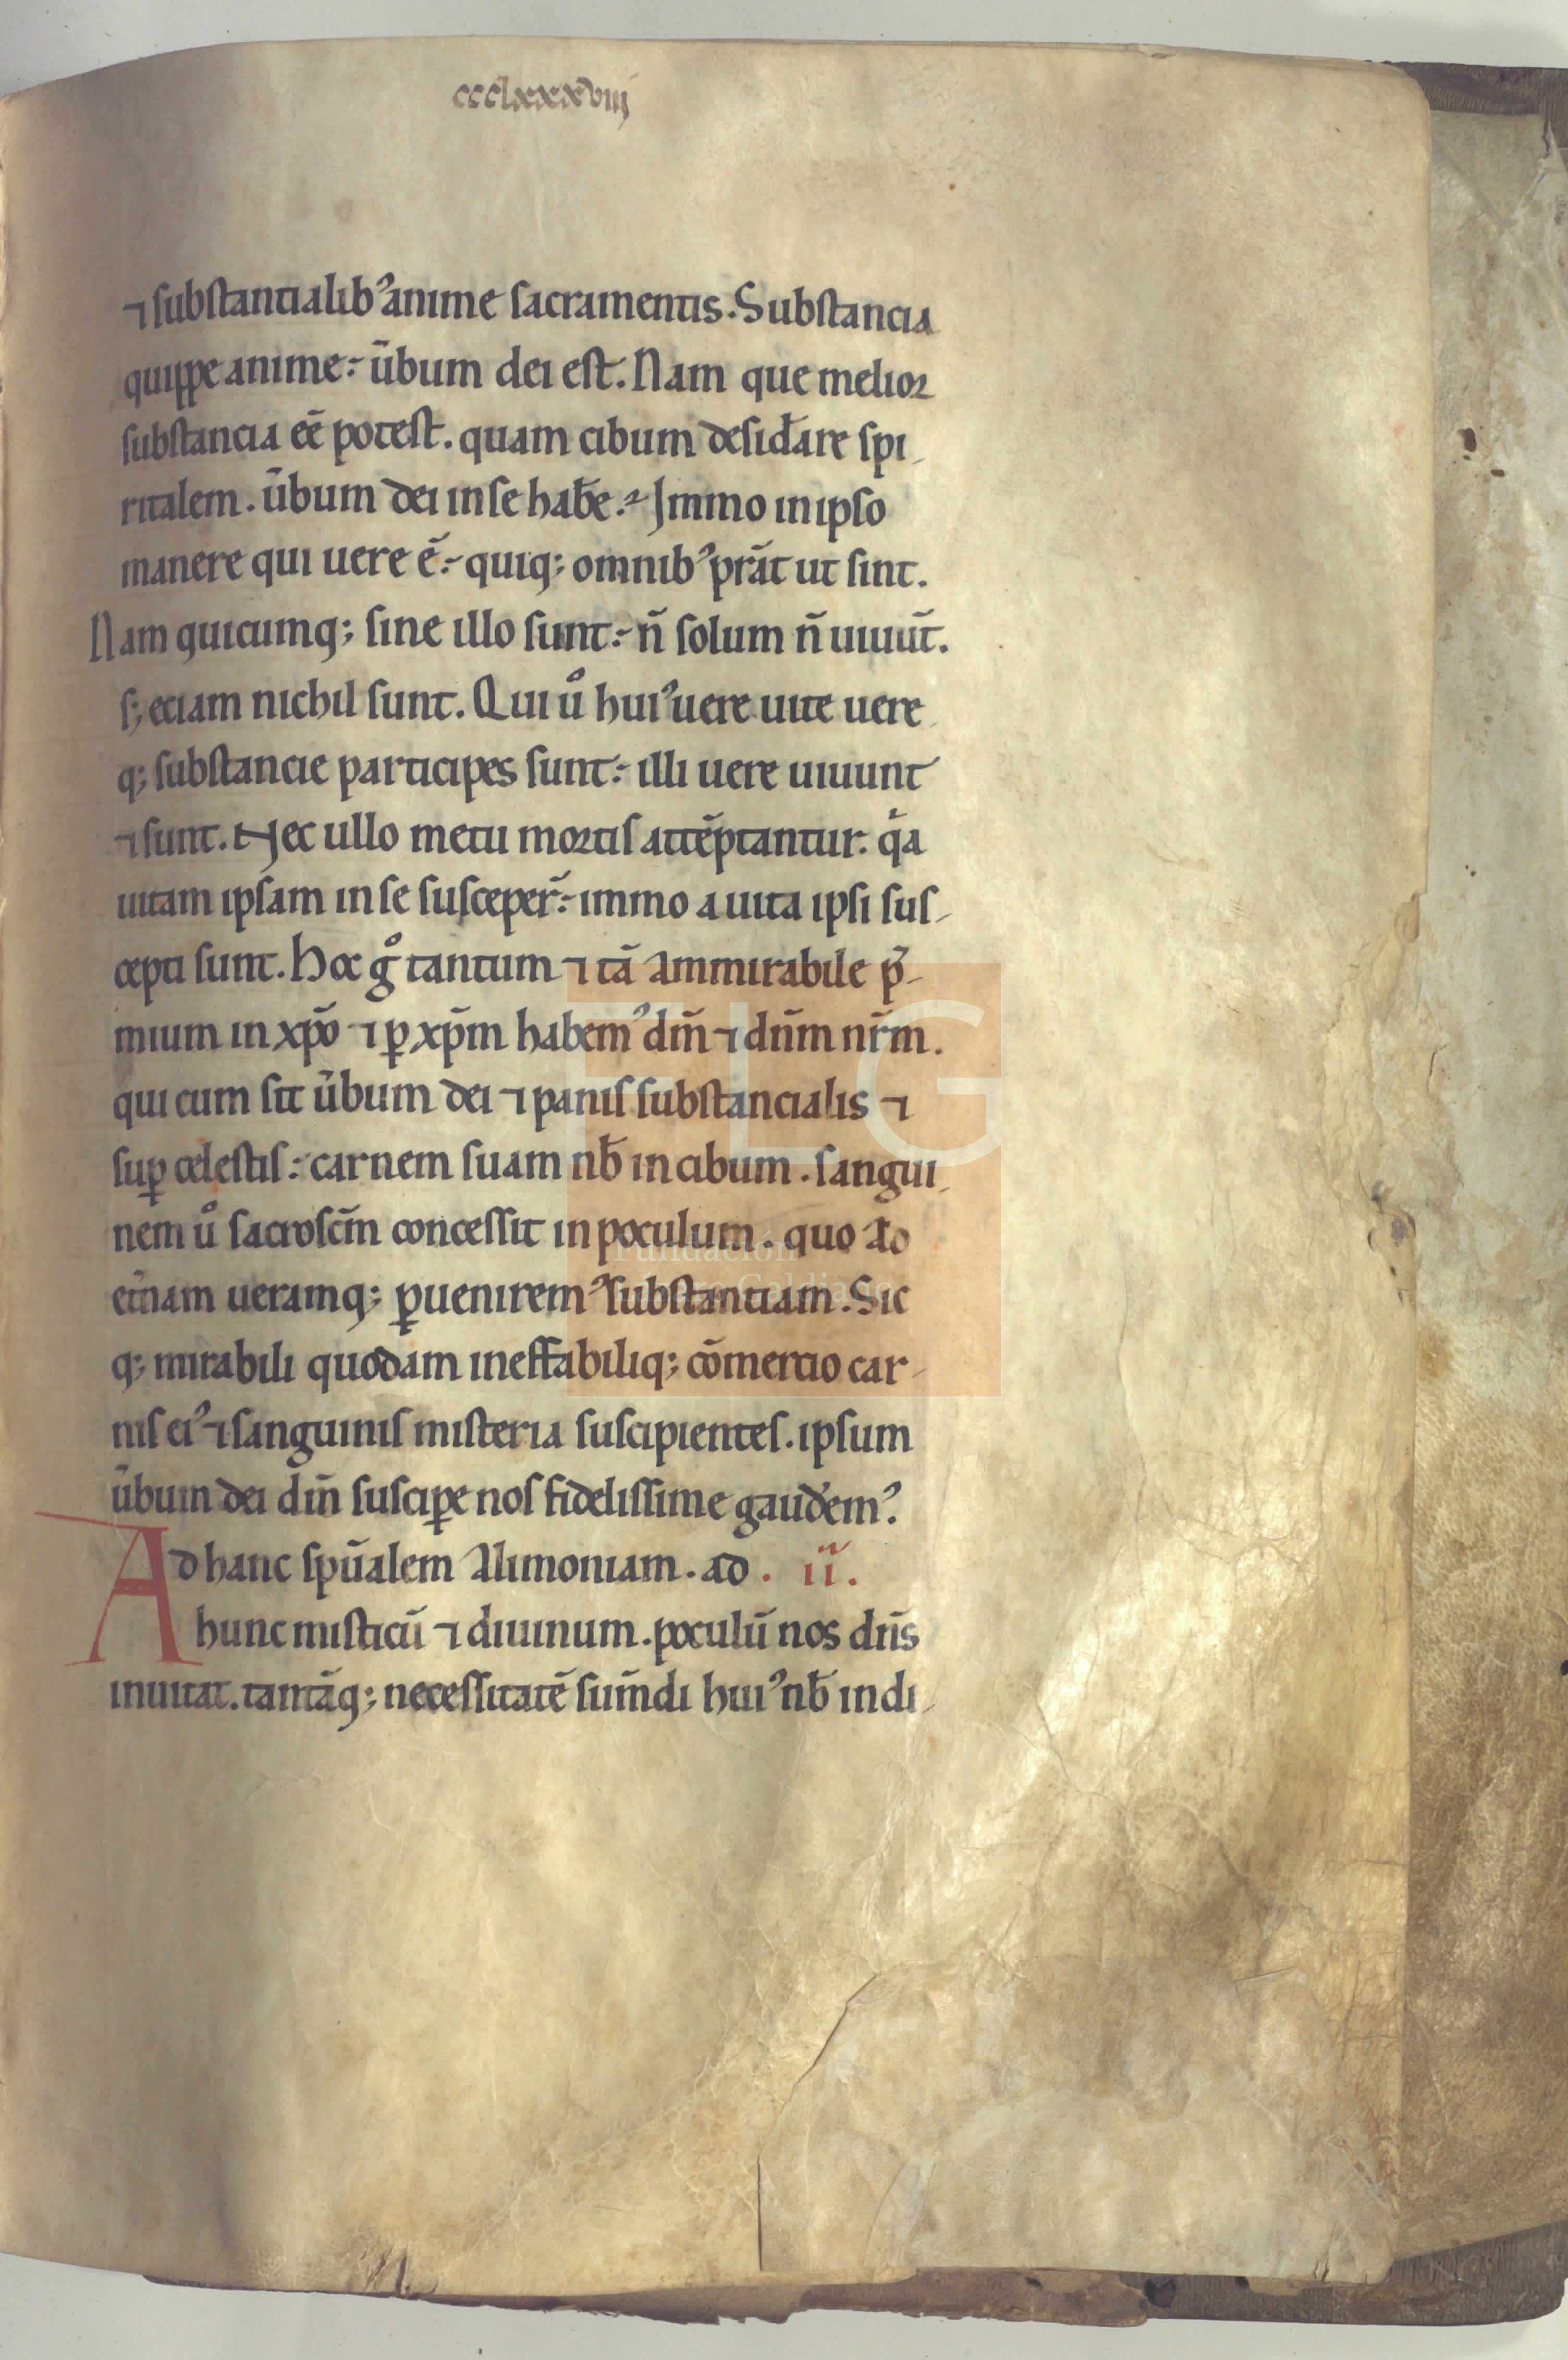 ccclxxxxviij
⁊ substantialib᾽ anime sacramentis. Substancia
quippe anime: ūbum dei est. Nam que melior
substancia eē potest. quam cibum desid̄are spi
ritalem. ūbum dei in se hab̄e. Immo in ipso
manere qui uere ē: quiq; omnib᾽ prāt ut sint.
Nam quicumq; sine illo sunt: n̄ solum n̄ uiuūt.
s; eciam nichil sunt. Qui uͦ hui᾽ uere uite uere
q; substancie participes sunt: illi uere uiuunt
⁊ sunt. Nec ullo metu mortis attēptantur: qͣa
uitam ipsam in se susceper̄: immo a uita ipsi sus
cepti sunt. Hoc gͦ tantum ⁊ tā ammirabile p̄
mium in xp̄o ⁊ ꝑ xp̄m habem᾽ dm̄ ⁊ dn̄m nr̄m.
qui cum sit ūbum dei ⁊ panis substancialis ⁊
suꝑ celestis: carnem suam nb̄ in cibum. sangui
nem uͦ sacrosc̄m concessit in poculum. quo ad
et̄nam ueramq; ꝑuenirem᾽ substantiam. Sic
q; mirabili quodam ineffabiliq; cōmercio car
nis ei᾽ ⁊ sanguinis misteria suscipientes. ipsum
ūbum dei dm̄ susciꝑe nos fidelissime gaudem᾽.
Ad hanc spūalem alimoniam. ad . ii.
hunc misticū ⁊ diuinum. poculū nos dn̄s
inuitat. tantāq; necessitatē sum̄di hui᾽ nb̄ indi
FLG
Fundación
Lázaro Galdiano